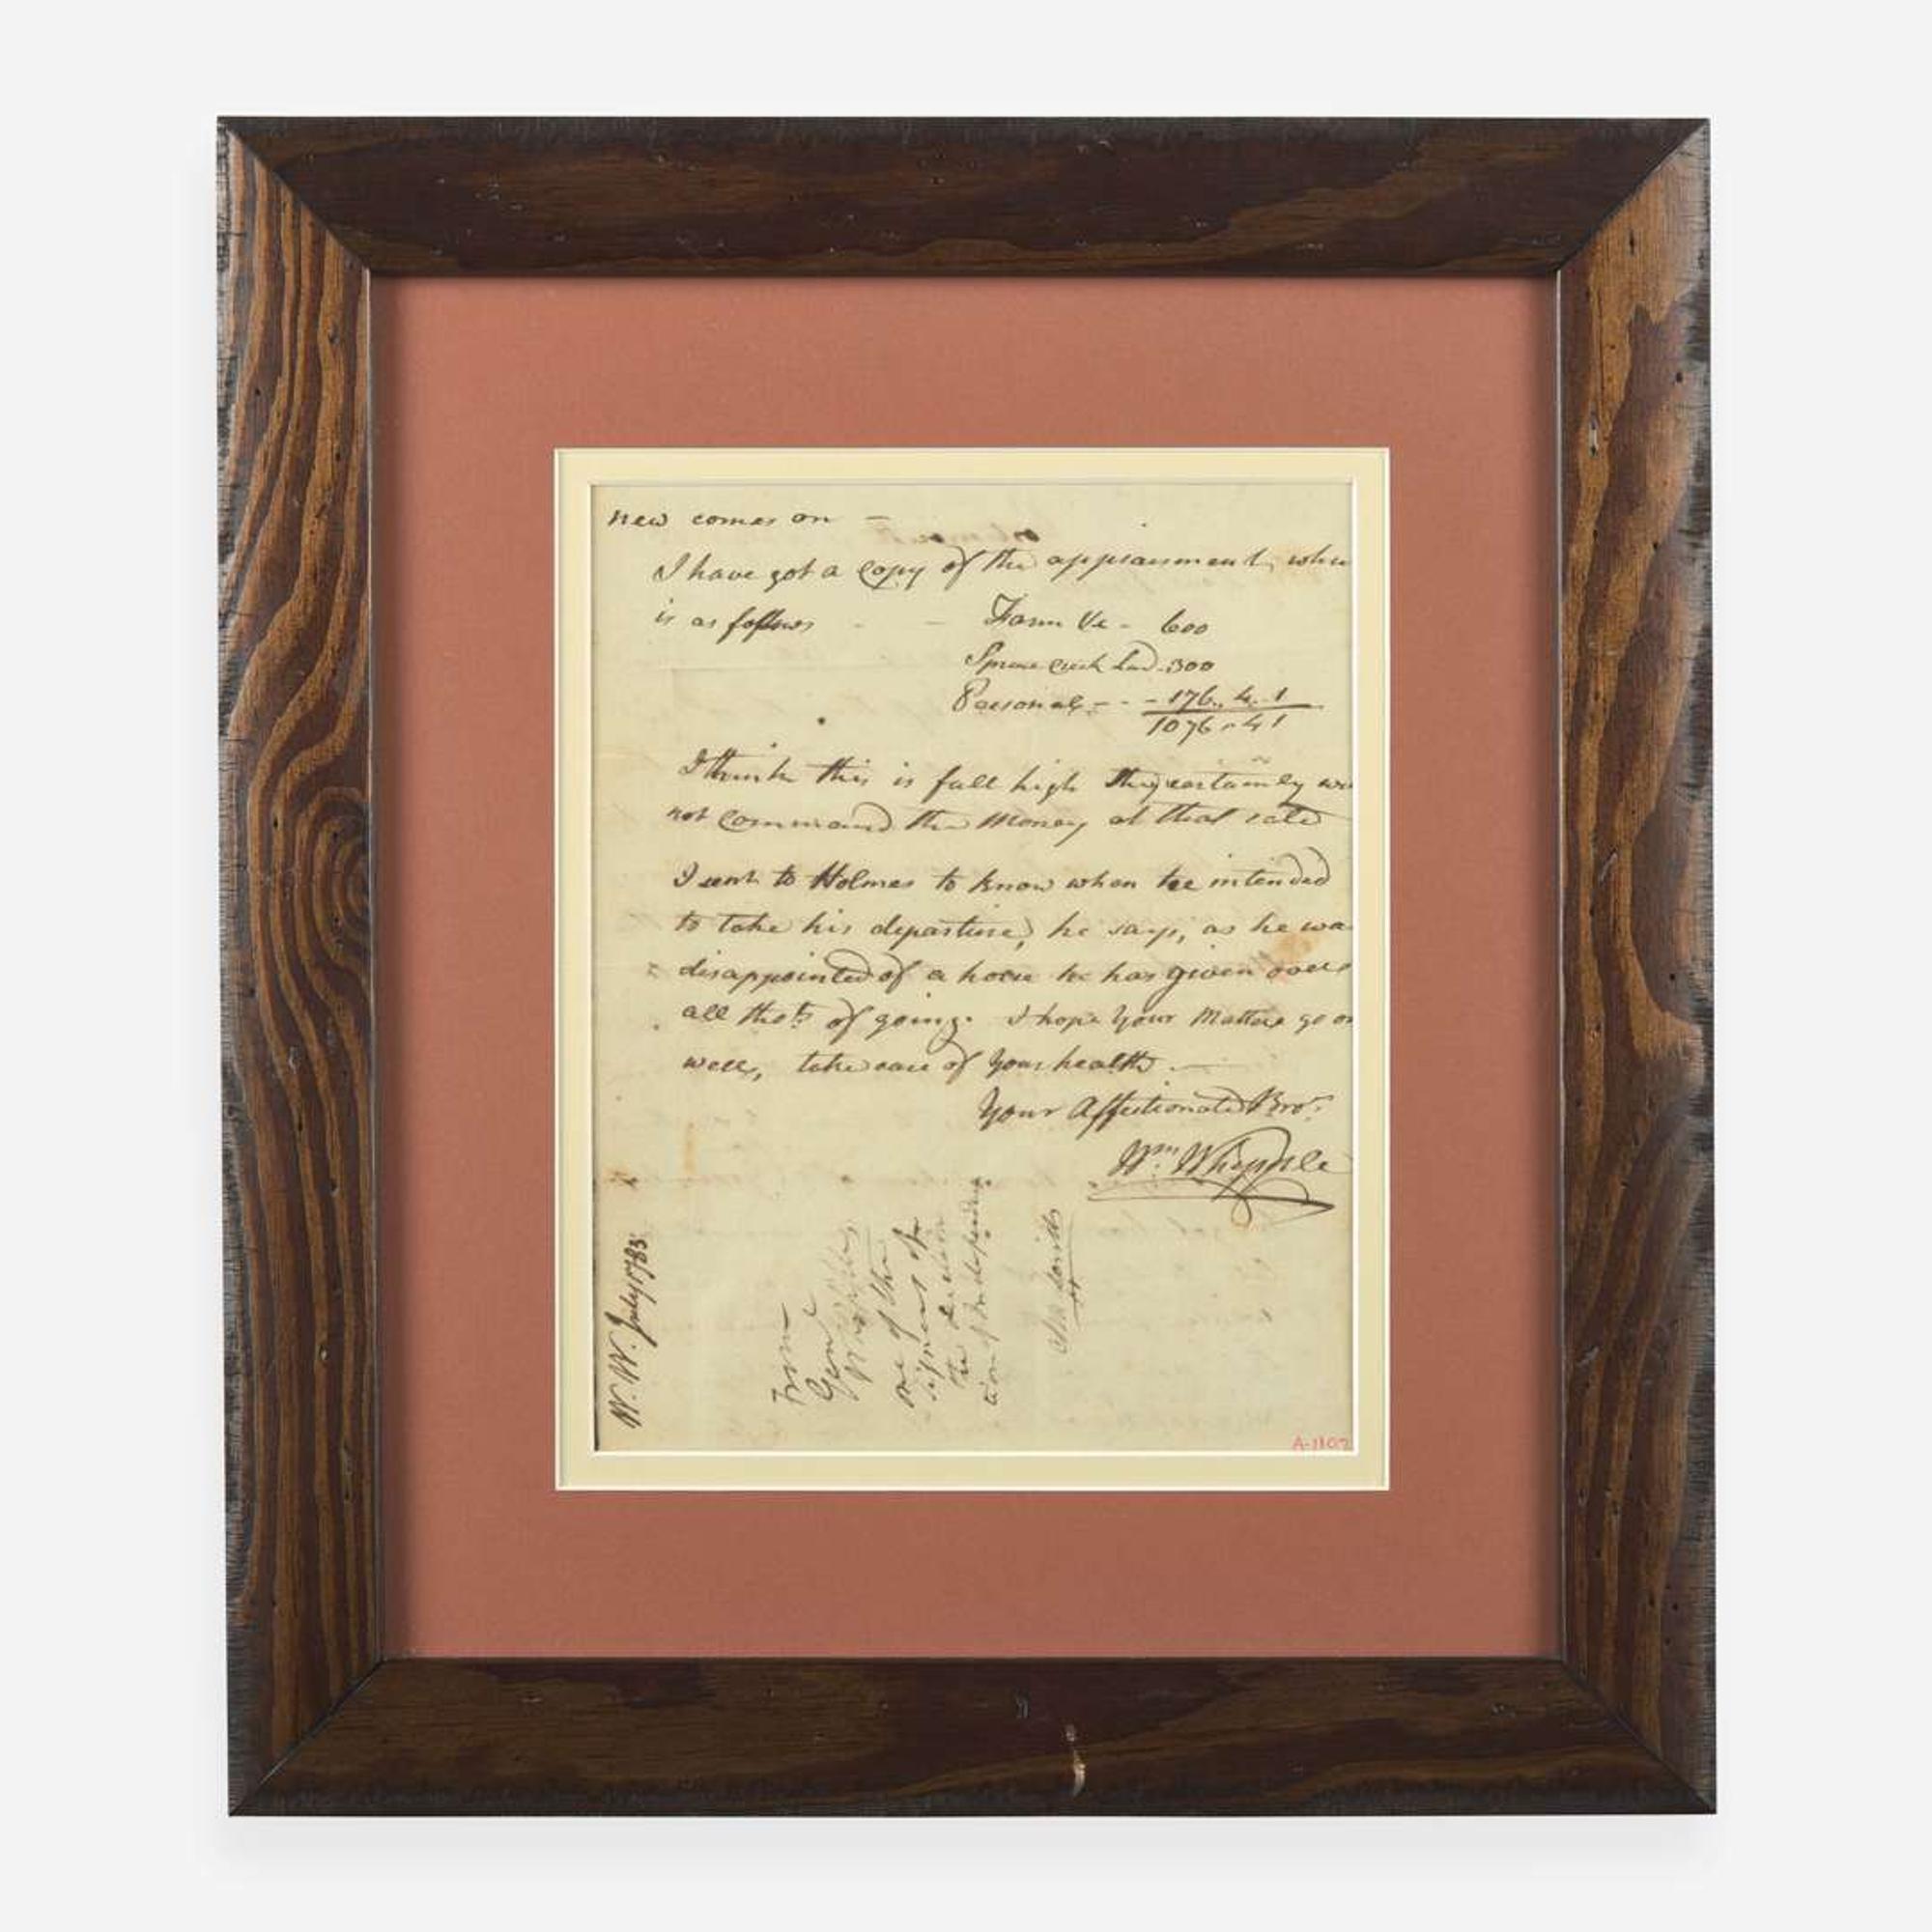 new comes on –
I have got a Copy of the appraisment, whic
is as follows - - Farm &c - 600
Spruce Creek Land - 300
Personal - - - 176.. 4.. 1
1076 .. 4 1
I think this is full high they certainly wo
not Command the Money at that rate
I sent to Holmes to know when he intended
to take his departure, he says, as he wa
disappointed of a horse he has given over
all thots of going. I hope Your Matters go on
well, take care of Your health. —
Your Affectionate Bror.
Wm. Whipple
W. W. July 1783
From
Genl.
Whipple
one of the
signers of
the declara
tion of Independence
A-1107